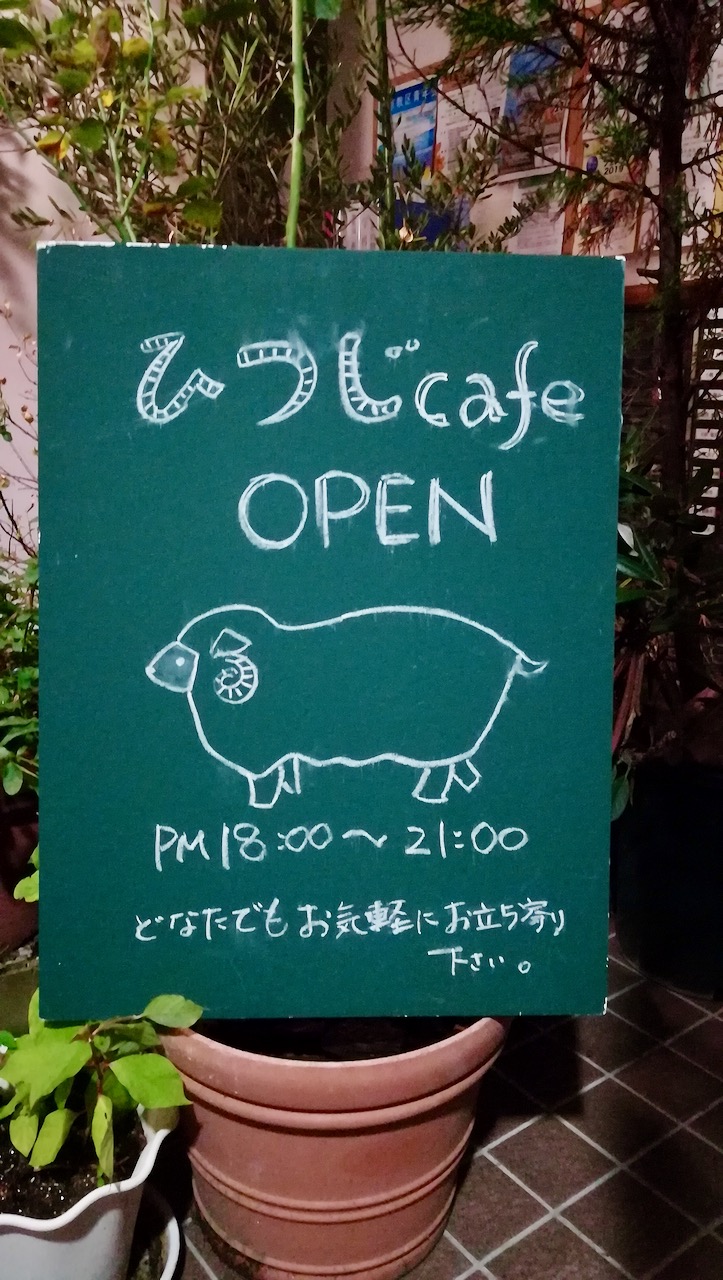 ひつじcafe
OPEN
PM18:00〜21:00
どなたでもお気軽にお立ち寄り
下さい。